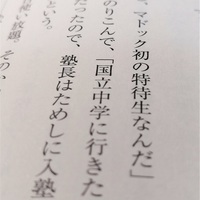 、マドック初の特待生なんだ」
のりこんで、「国立中学に行きた
だったので、塾長はためしに入塾
という。
放題。そのか